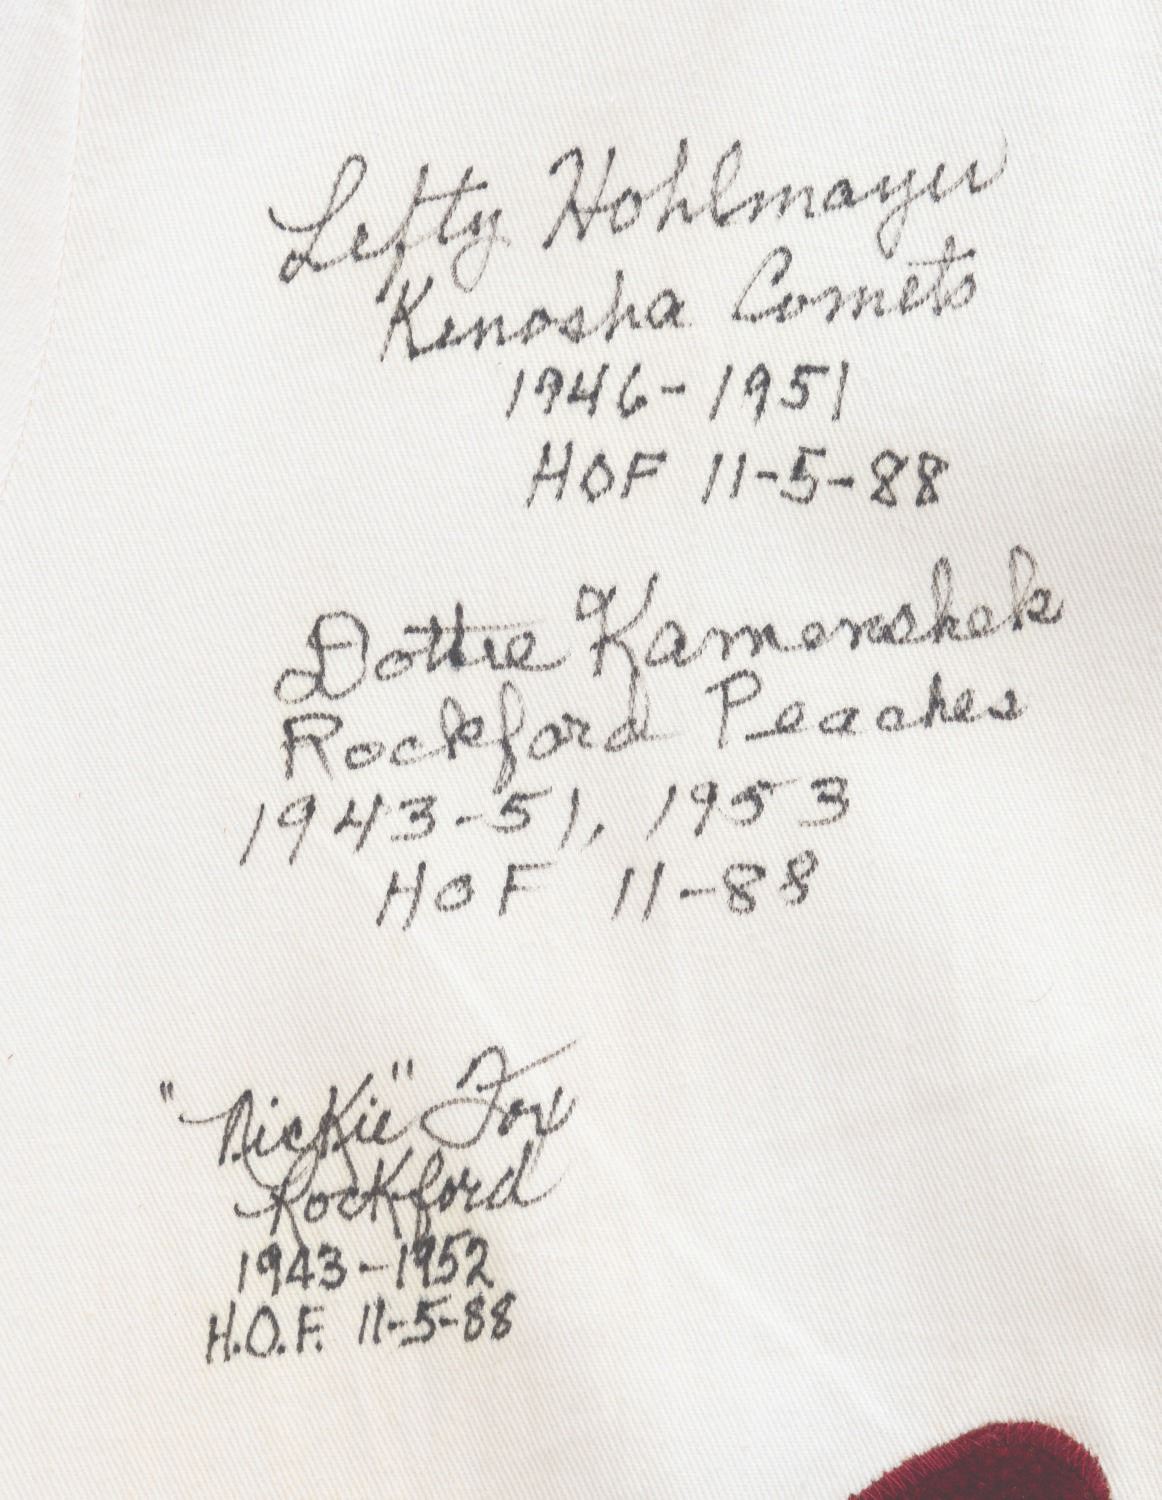 Lefty Hohlmayer
Kenosha Comets
1946-1951
HOF 11-5-88
Dottie Kamenshek
Rockford Peaches
1943-51, 1953
HOF 11-88
"Nickie" Fox
Rockford
1943-1952
H.O.F. 11-5-88